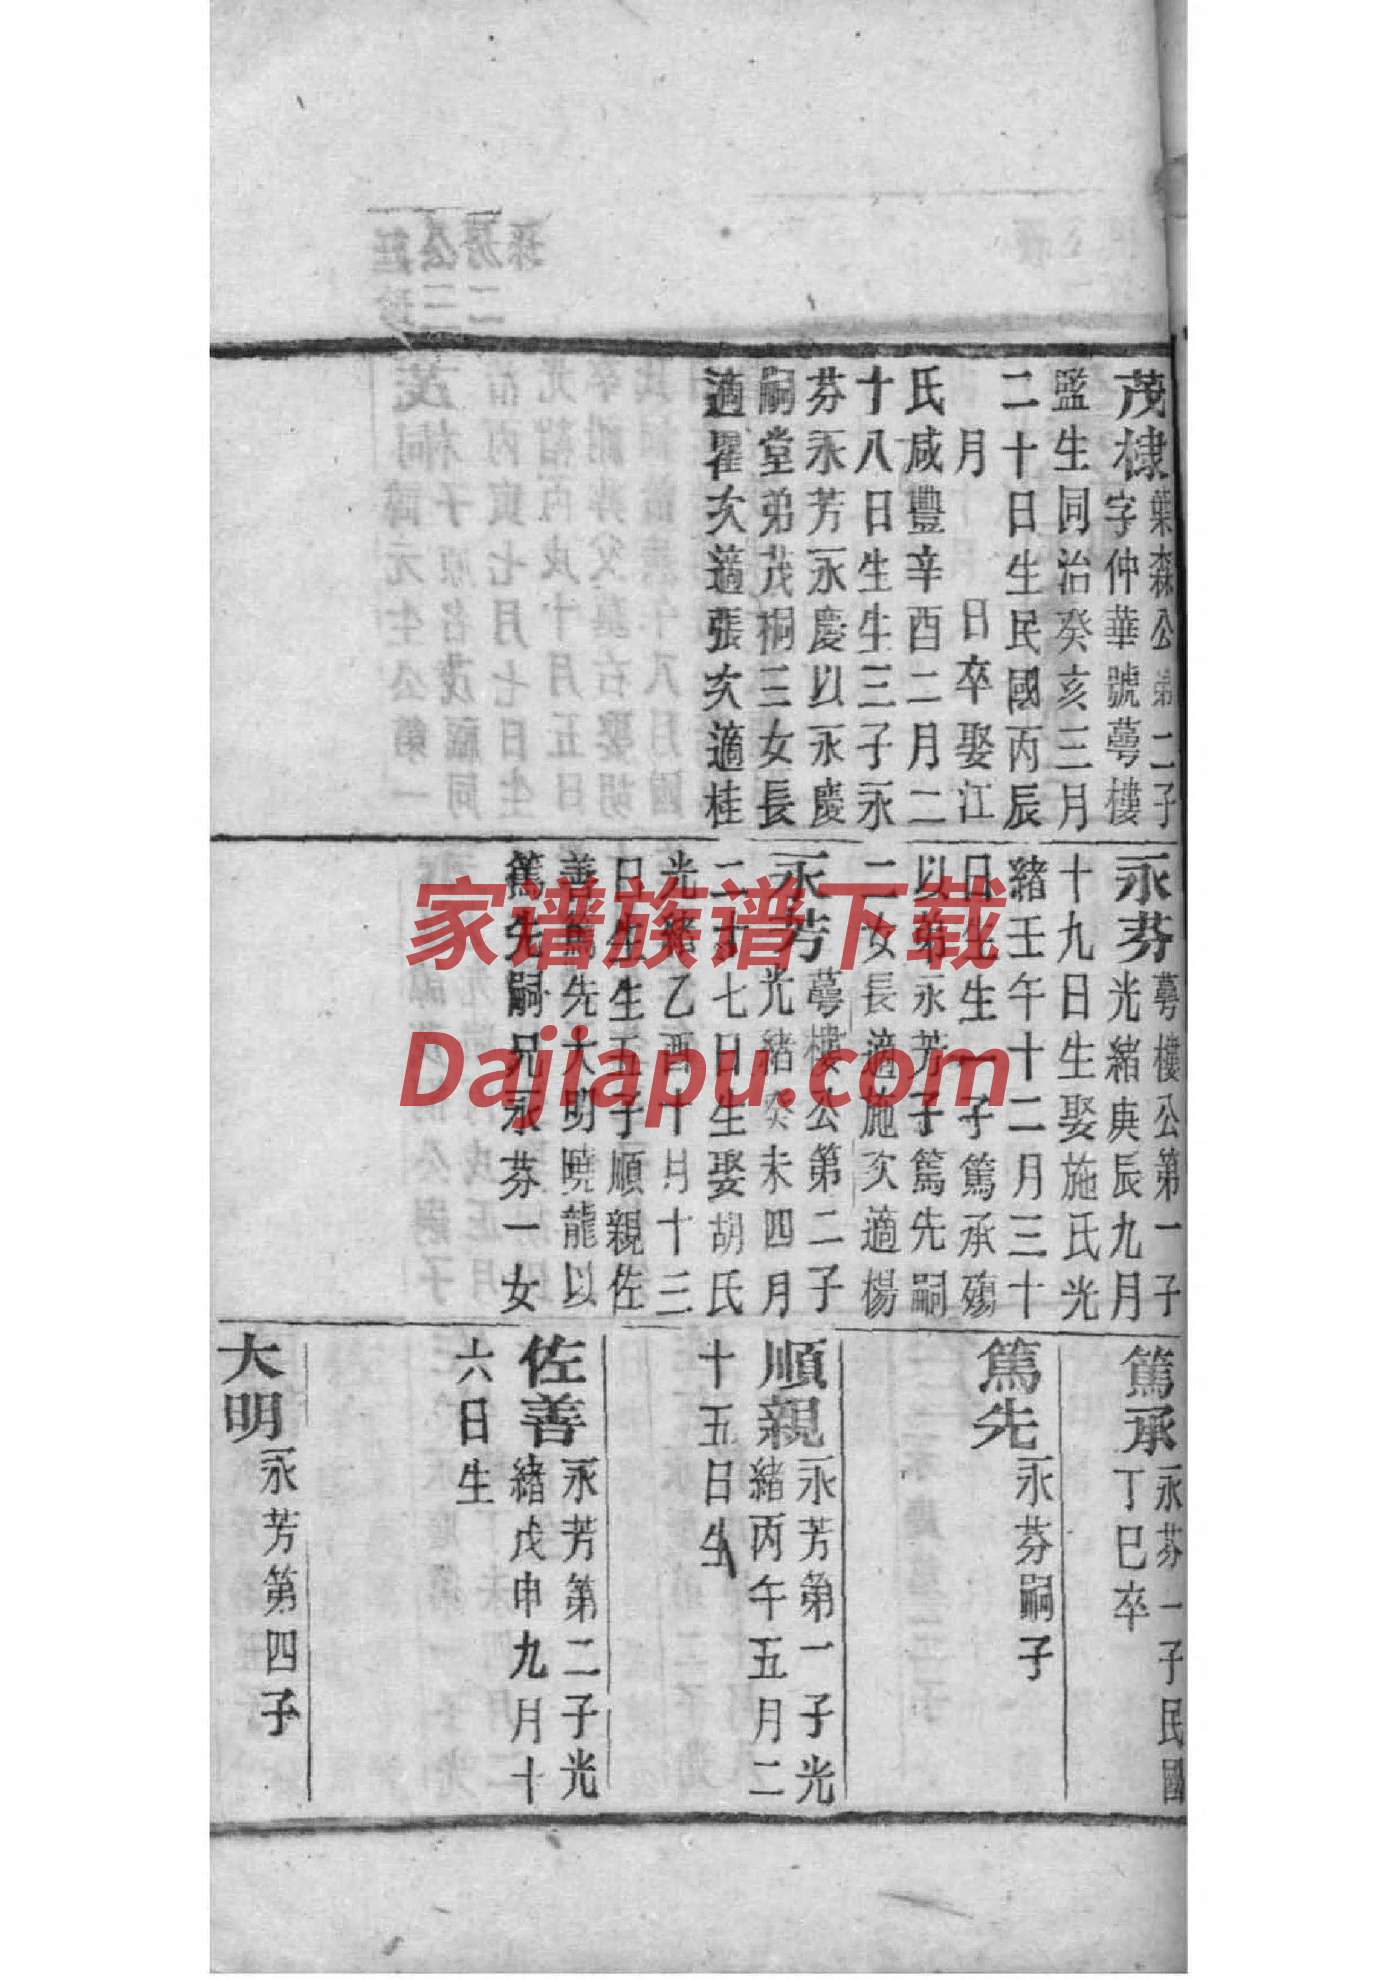 茂棣
葉森公第二子
字仲華號蕚樓
監生同治癸亥三月
二十日生民國丙辰
月 日卒娶江
氏咸豐辛酉二月二
十八日生生三子永
芬永芳永慶以永慶
嗣堂弟茂桐三女長
適瞿次適張次適桂
永芬
蕚樓公第一子
光緒庚辰九月
十九日生娶施氏光
緒壬午十二月三十
日生生一子篤承殤
以弟永芳子篤先嗣
二女長適施次適楊
永芳
蕚樓公第二子
光緒癸未四月
二十七日生娶胡氏
光緒乙酉十月十三
日生生五子順親佐
善篤先大明曉龍以
篤先嗣兄永芬一女
篤承
永芬一子民國
丁巳卒
篤先
永芬嗣子
順親
永芳第一子光
緒丙午五月二
十五日生
佐善
永芳第二子光
緒戊申九月十
六日生
大明
永芳第四子
家谱族谱下载
Dajiapu.com